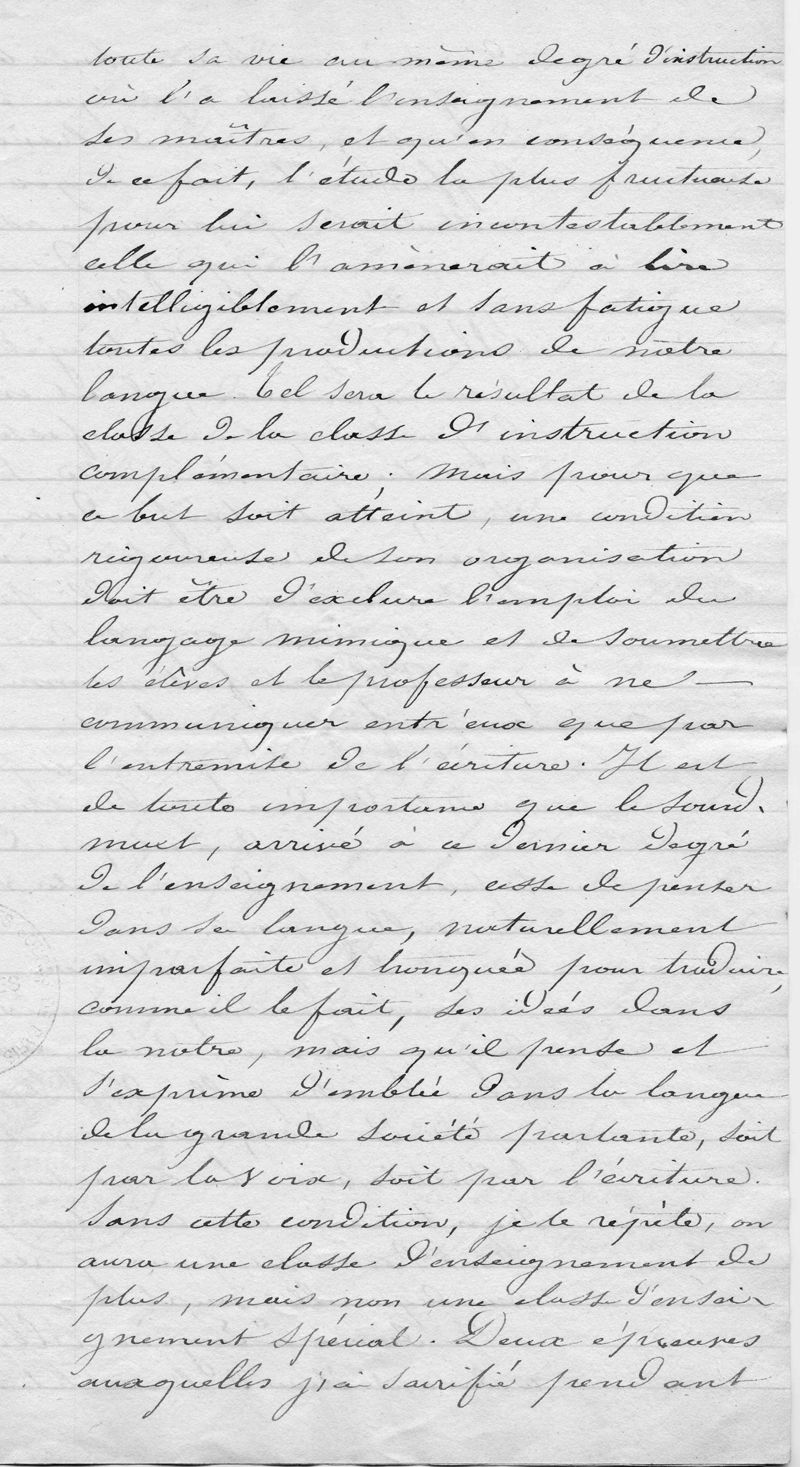 toute sa vie au même degré d'instruction
où l'a laissé l'enseignement de
ses maîtres, et qu'en conséquence,
de ce fait, l'étude la plus fructueuse
pour lui serait incontestablement
celle qui l'amènerait à lire
intelligiblement et sans fatigue
toutes les productions de nôtre
langue. Tel sera le résultat de la
classe de la classe d'instruction
complémentaire; mais pour que
ce but soit atteint, une condition
rigoureuse de son organisation
doit être d'exclure l'emploi du
langage mimique et de soumettre
les élèves et le professeur à ne
communiquer entr'eux que par
l'entremise de l'écriture. Il est
de toute importance que le sourd-
muet, arrivé à ce dernier degré
de l'enseignement, cesse de penser
dans sa langue, naturellement
imparfaite et tronquée pour traduire,
comme il le fait, ses idées dans
la notre, mais qu'il pense et
s'exprime d'emblée dans la langue
de la grande société parlante, soit
par la voix, soit par l'écriture.
Sans cette condition, je le répète, on
aura une classe d'enseignement de
plus, mais non une classe d'ensei-
gnement spécial. Deux épreuves
auxquelles j'ai sacrifié pendant